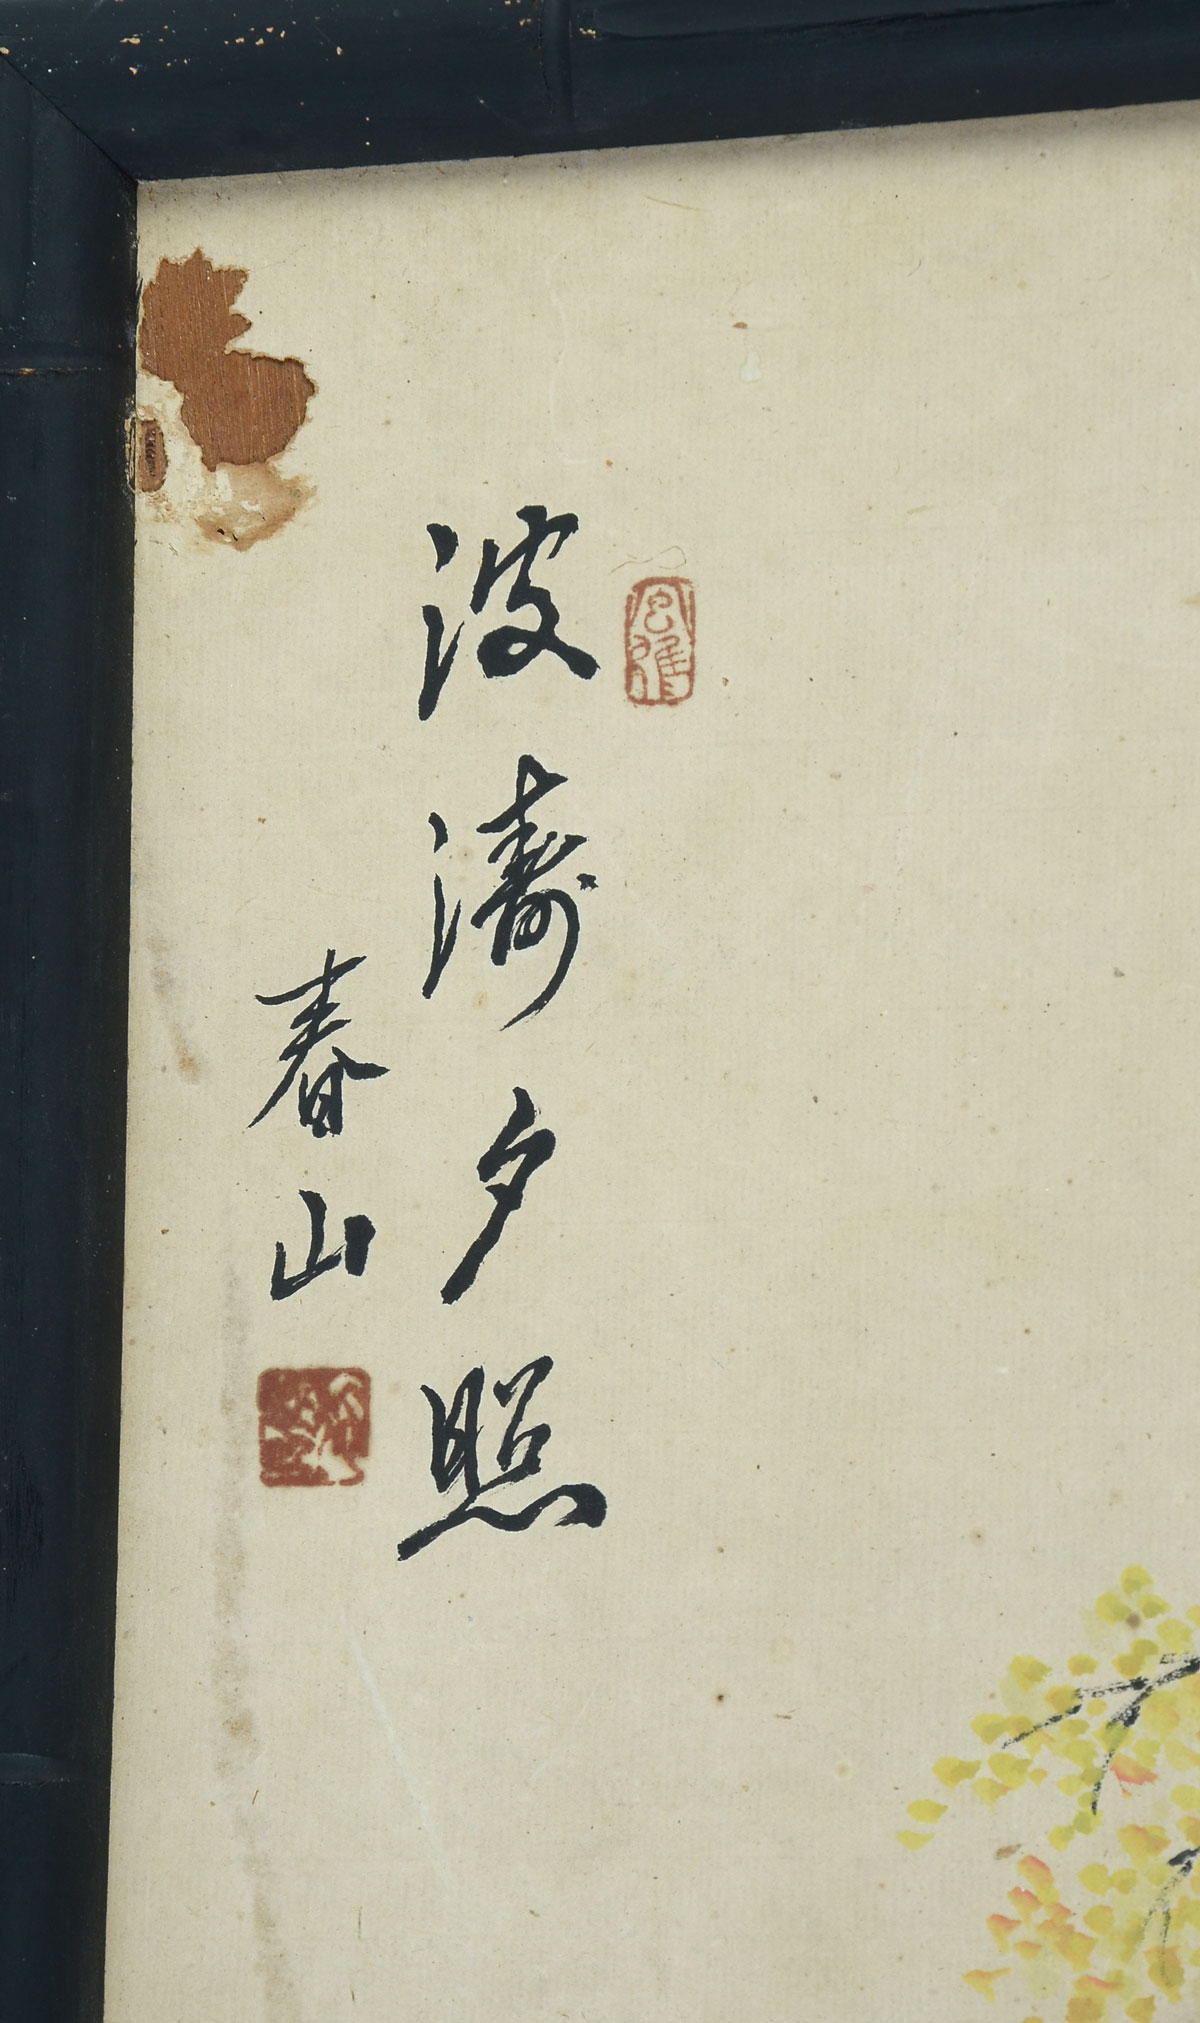 波濤夕照
春山